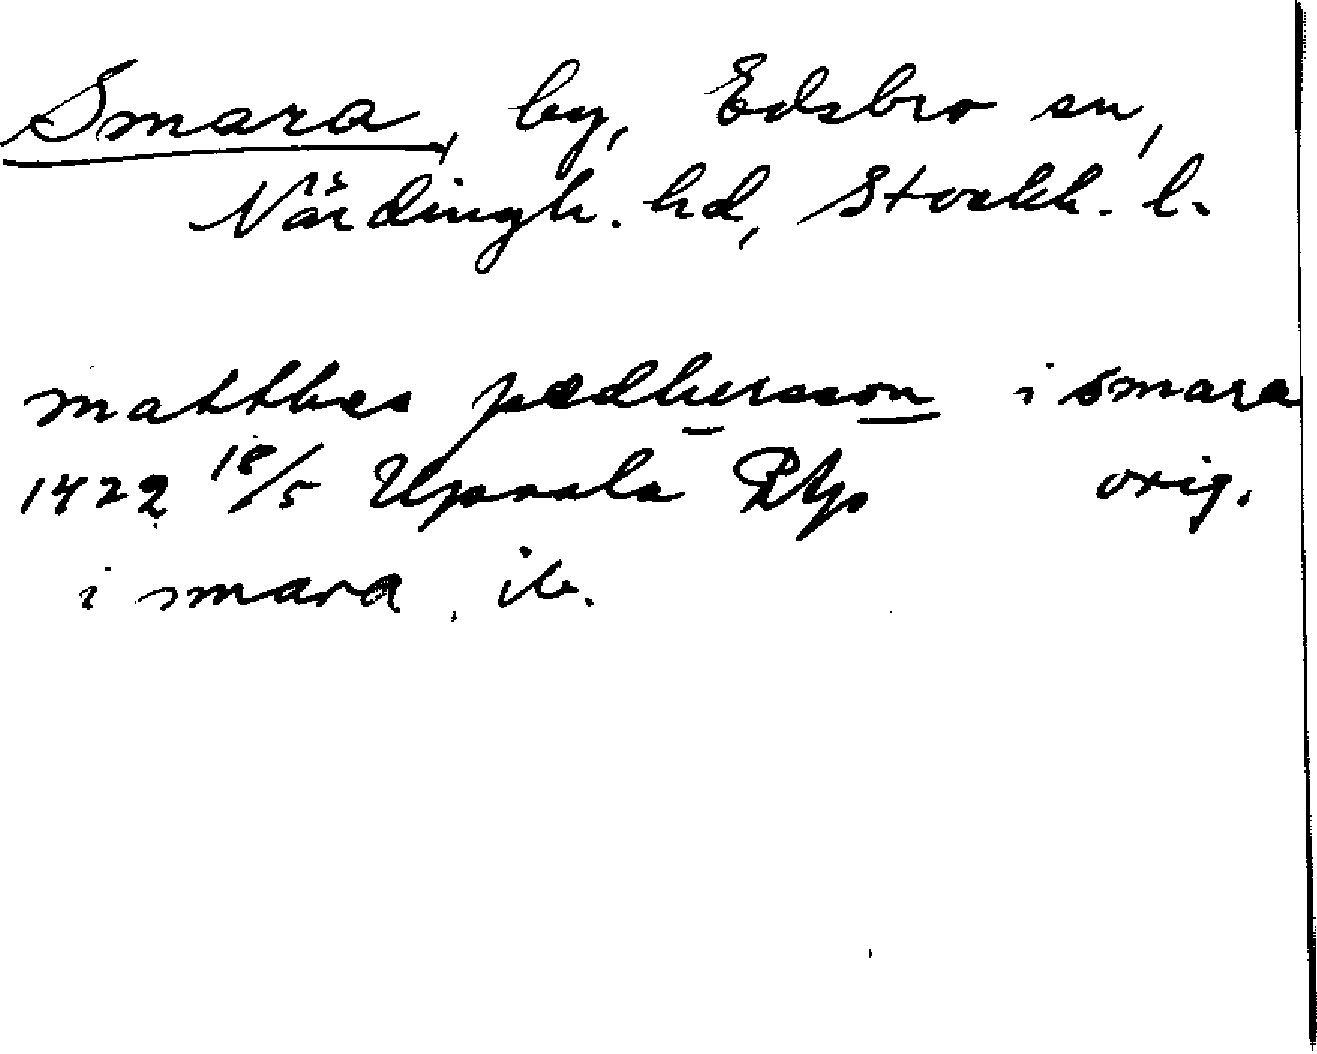 Smara, by, Edsbro sn,
Närdingh. hd, Stockh. l.
matthes pædhersson i smara
1422 18/5 Uppsala RAp orig.
i smara, ib.